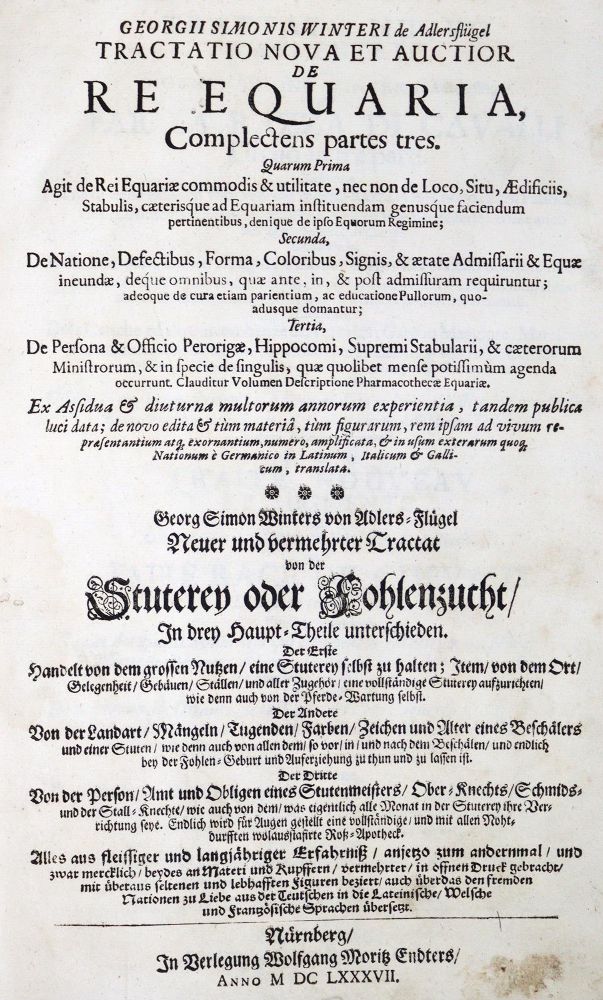 GEORGII SIMONIS WINTERI de Adlersflügel
TRACTATIO NOVA ET AUCTIOR
DE
RE EQUARIA,
Complectens partes tres.
Quarum Prima
Agit de Rei Equariæ commodis & utilitate, nec non de Loco, Situ, Ædificiis,
Stabulis, cæterisque ad Equariam instituendam genusque faciendum
pertinentibus, denique de ipso Equorum Regimine;
Secunda,
De Natione, Defectibus, Forma, Coloribus, Signis, & ætate Admissarii & Equæ
ineundæ, deque omnibus, quæ ante, in, & post admissuram requiruntur;
adeoque de cura etiam parientium, ac educatione Pullorum, quo-
adusque domantur;
Tertia,
De Persona & Officio Perorigæ, Hippocomi, Supremi Stabularii, & cæterorum
Ministrorum, & in specie de singulis, quæ quolibet mense potissimùm agenda
occurrunt. Clauditur Volumen Descriptione Pharmacothecæ Equariæ.
Ex Assidua & diuturna multorum annorum experientia, tandem publica
luci data; de novo edita & tùm materiâ, tùm figurarum, rem ipsam ad vivum re-
præsentantium atq; exornantium, numero, amplificata, & in usum exterarum quoq;
Nationum è Germanico in Latinum, Italicum & Galli-
cum, translata.
Georg Simon Winters von Adlers-Flügel
Neuer und vermehrter Tractat
von der
Stuterey oder Fohlenzucht/
In drey Haupt-Theile unterschieden.
Der Erste
Handelt von dem grossen Nutzen/ eine Stuterey selbst zu halten; Item/ von dem Ort/
Gelegenheit/ Gebäuen/ Ställen/ und aller Zugehör/ eine vollständige Stuterey aufzurichten/
wie denn auch von der Pferde-Wartung selbst.
Der Andere
Von der Landart/ Mängeln/ Tugenden/ Farben/ Zeichen und Alter eines Beschälers
und einer Stuten/ wie denn auch von allen dem/ so vor/ in/ und nach dem Beschälen/ und endlich
bey der Fohlen-Geburt und Auferziehung zu thun und zu lassen ist.
Der Dritte
Von der Person/ Amt und Obligen eines Stutenmeisters/ Ober-Knechts/ Schmids-
und der Stall-Knechte/ wie auch von dem/ was eigentlich alle Monat in der Stuterey ihre Ver-
richtung seye. Endlich wird für Augen gestellt eine vollständige/ und mit allen Noht-
durfften wolausstafirte Roß-Apotheck.
Alles aus fleissiger und langjähriger Erfahrniß/ anjetzo zum andernmal/ und
zwar mercklich/ beydes an Materi und Kupffern/ vermehrter/ in offnen Druck gebracht/
mit überaus seltenen und lebhafften Figuren beziert/ auch überdas den fremden
Nationen zu Liebe aus der Teutschen in die Lateinische/ Welsche
und Frantzösische Sprachen übersetzt.
Nürnberg/
In Verlegung Wolfgang Moritz Endters/
ANNO M DC LXXXVII.